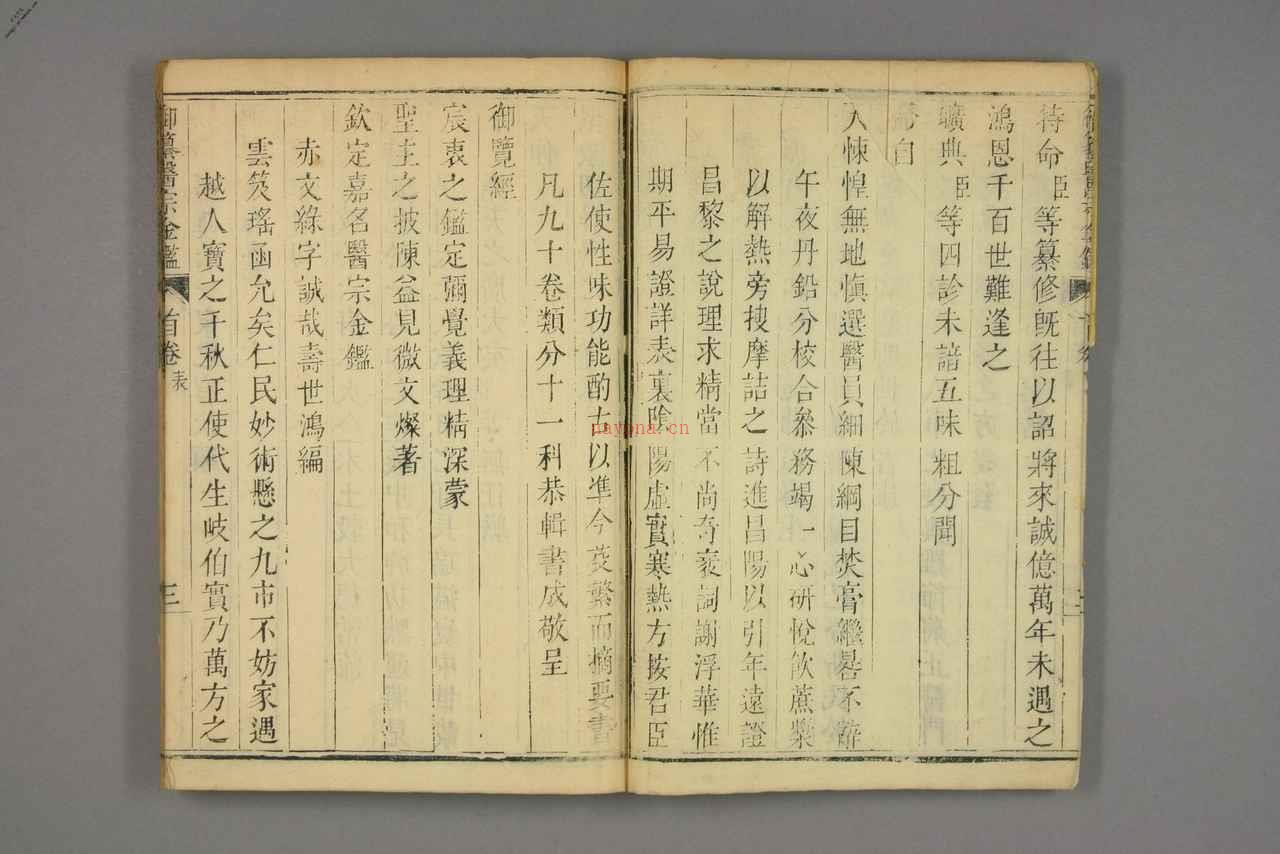 待命臣等纂修旣往以詔將來誠億萬年未遇之
鴻恩千百世難逢之
曠典臣等四診未諳五味粗分聞
命自
天悚惶無地愼選醫員細陳綱目焚膏繼晷不辭
午夜丹鉛分校合叅務竭一心硏悅飮蔗漿
以解熱旁搜摩詰之詩進昌陽以引年遠證
昌黎之說理求精當不尚奇衺詞謝浮華惟
期平易證詳表裏陰陽虛實寒熱方按君臣
佐使性味功能酌古以準今芟繁而摘要書
凡九十卷類分十一科恭輯書成敬呈
御覽經
宸衷之鑑定彌覺義理精深蒙
聖主之披陳益見微文燦著
欽定嘉名醫宗金鑑
赤文綠字誠哉壽世鴻編
雲笈瑤函允矣仁民妙術懸之九市不妨家遇
越人寶之千秋正使代生岐伯實乃萬方之
御纂醫宗金鑑 首卷 表 三
nayona.cn